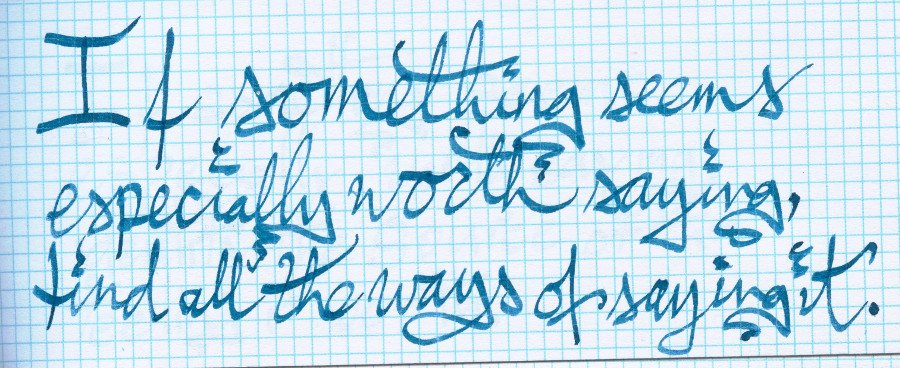 If something seems
especially worth saying,
find all the ways of saying it.